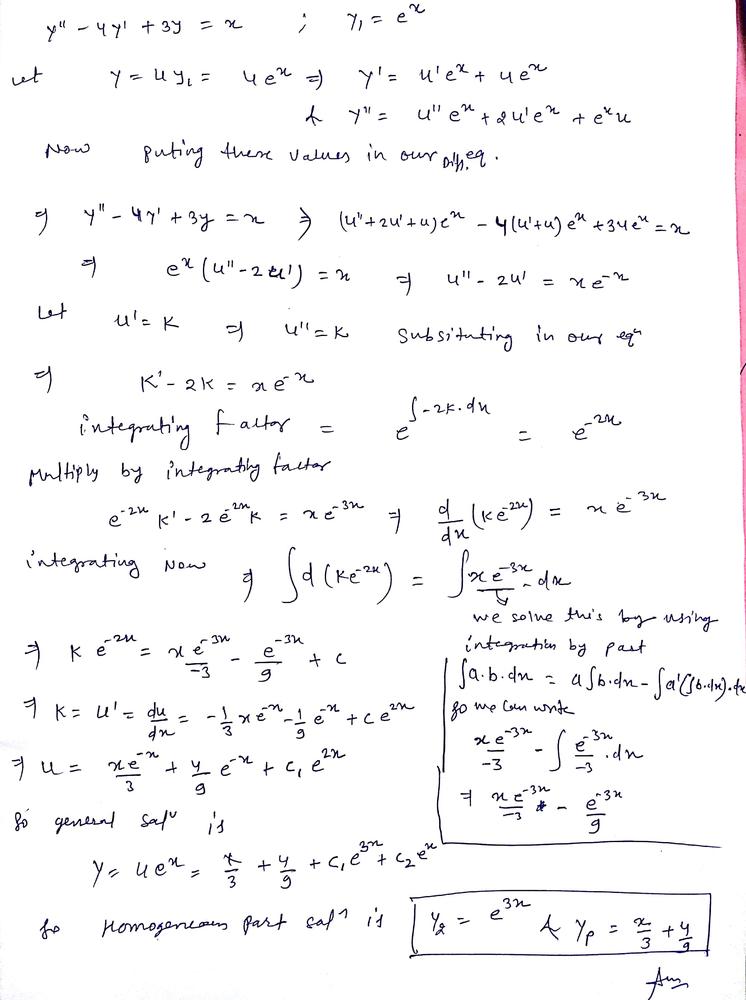 y'' - 4y' + 3y = x ; y₁ = eˣ
Let y = uy₁ = ueˣ ⇒ y' = u'eˣ + ueˣ
& y'' = u''eˣ + 2u'eˣ + eˣu
Now puting these values in our Diff. eq.
⇒ y'' - 4y' + 3y = x ⇒ (u''+2u'+u)eˣ - 4(u'+u)eˣ + 3ueˣ = x
⇒ eˣ(u'' - 2u') = x ⇒ u'' - 2u' = xe⁻ˣ
Let u' = K ⇒ u'' = K Subsituting in our eqⁿ
⇒ K' - 2K = xe⁻ˣ
integrating factor = e^{∫-2K.dx} = e⁻²ˣ
Multiply by integrating factor
e⁻²ˣ K' - 2e⁻²ˣK = xe⁻³ˣ ⇒ d/dx (Ke⁻²ˣ) = xe⁻³ˣ
integrating Now ⇒ ∫d(Ke⁻²ˣ) = ∫xe⁻³ˣ.dx
we solve this by using
integration by part
∫a.b.dx = a∫b.dx - ∫a'(∫b.dx).dx
So we can write
xe⁻³ˣ/-3 - ∫e⁻³ˣ/-3 .dx
⇒ xe⁻³ˣ/-3 - e⁻³ˣ/9
⇒ K e⁻²ˣ = xe⁻³ˣ/-3 - e⁻³ˣ/9 + c
⇒ K = u' = du/dx = -1/3 xe⁻ˣ - 1/9 e⁻ˣ + ce²ˣ
⇒ u = xe⁻ˣ/3 + 4/9 e⁻ˣ + c₁e²ˣ
So general solⁿ is
y = ueˣ = x/3 + 4/9 + c₁e³ˣ + c₂eˣ
So Homogeneous part solⁿ is y₂ = e³ˣ & yₚ = x/3 + 4/9
Ans